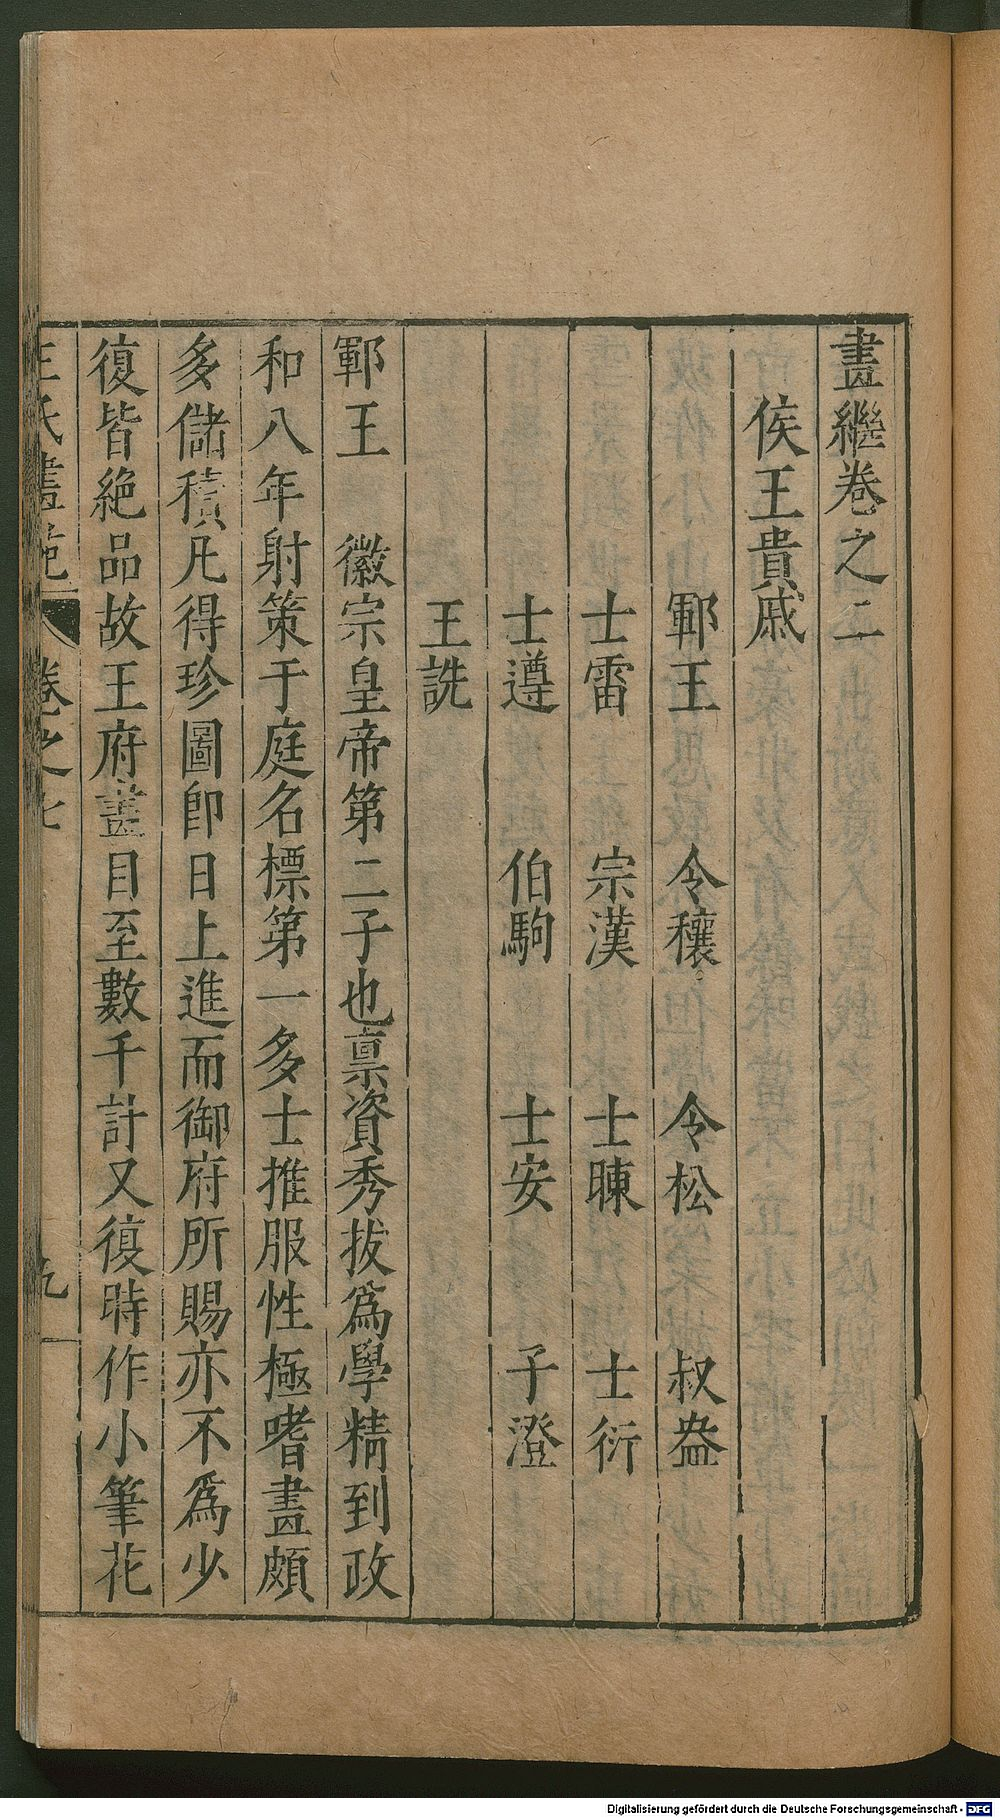 畫繼卷之二
侯王貴戚
鄆王 令穰 令松 叔盎
士雷 宗漢 士暕 士衍
士遵 伯駒 士安 子澄
王詵
鄆王 徽宗皇帝第二子也禀資秀拔爲學精到政
和八年射策于庭名標第一多士推服性極嗜畫頗
多儲積凡得珍圖即日上進而御府所賜亦不爲少
復皆絕品故王府畫目至數千計又復時作小筆花
王氏畫苑 卷之七 九
Digitalisierung gefördert durch die Deutsche Forschungsgemeinschaft - DFG